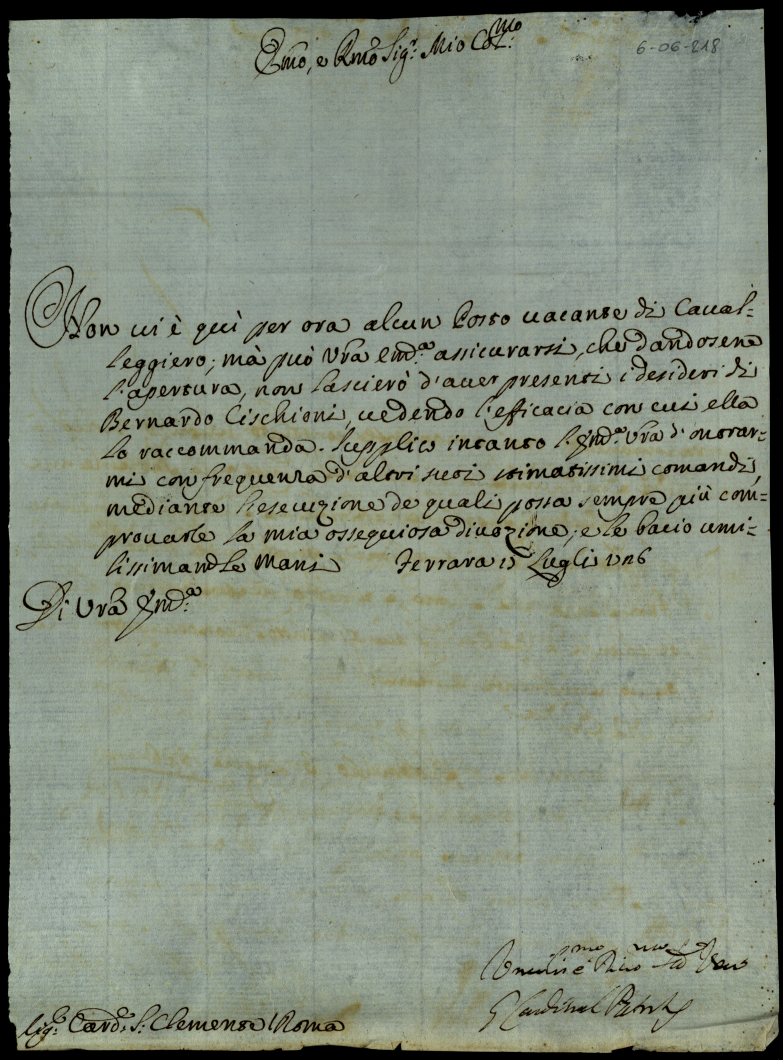 Emo, e Rmo Sigr. Mio Colmo
6-06-218
Non vi è quì per ora alcun Posto vacante di Caval-
leggiero; mà può Vra Emza. assicurarsi, che dandosene
l'apertura, non lascierò d'aver presenti i desideri di
Bernardo Cischioni, vedendo l'efficacia con cui ella
lo raccommanda. Supplico intanto l'Emza. Vra d'onorar-
mi con frequenza d'altri suoi stimatissimi comandi,
mediante l'esecuzione de quali possa sempre più com-
provarle la mia ossequiosa divozione; e le bacio umi-
lissimamte le Mani Ferrara 15 Luglio
Di Vra Emza.
Card.
Sigr. Card. S: Clemente / Roma